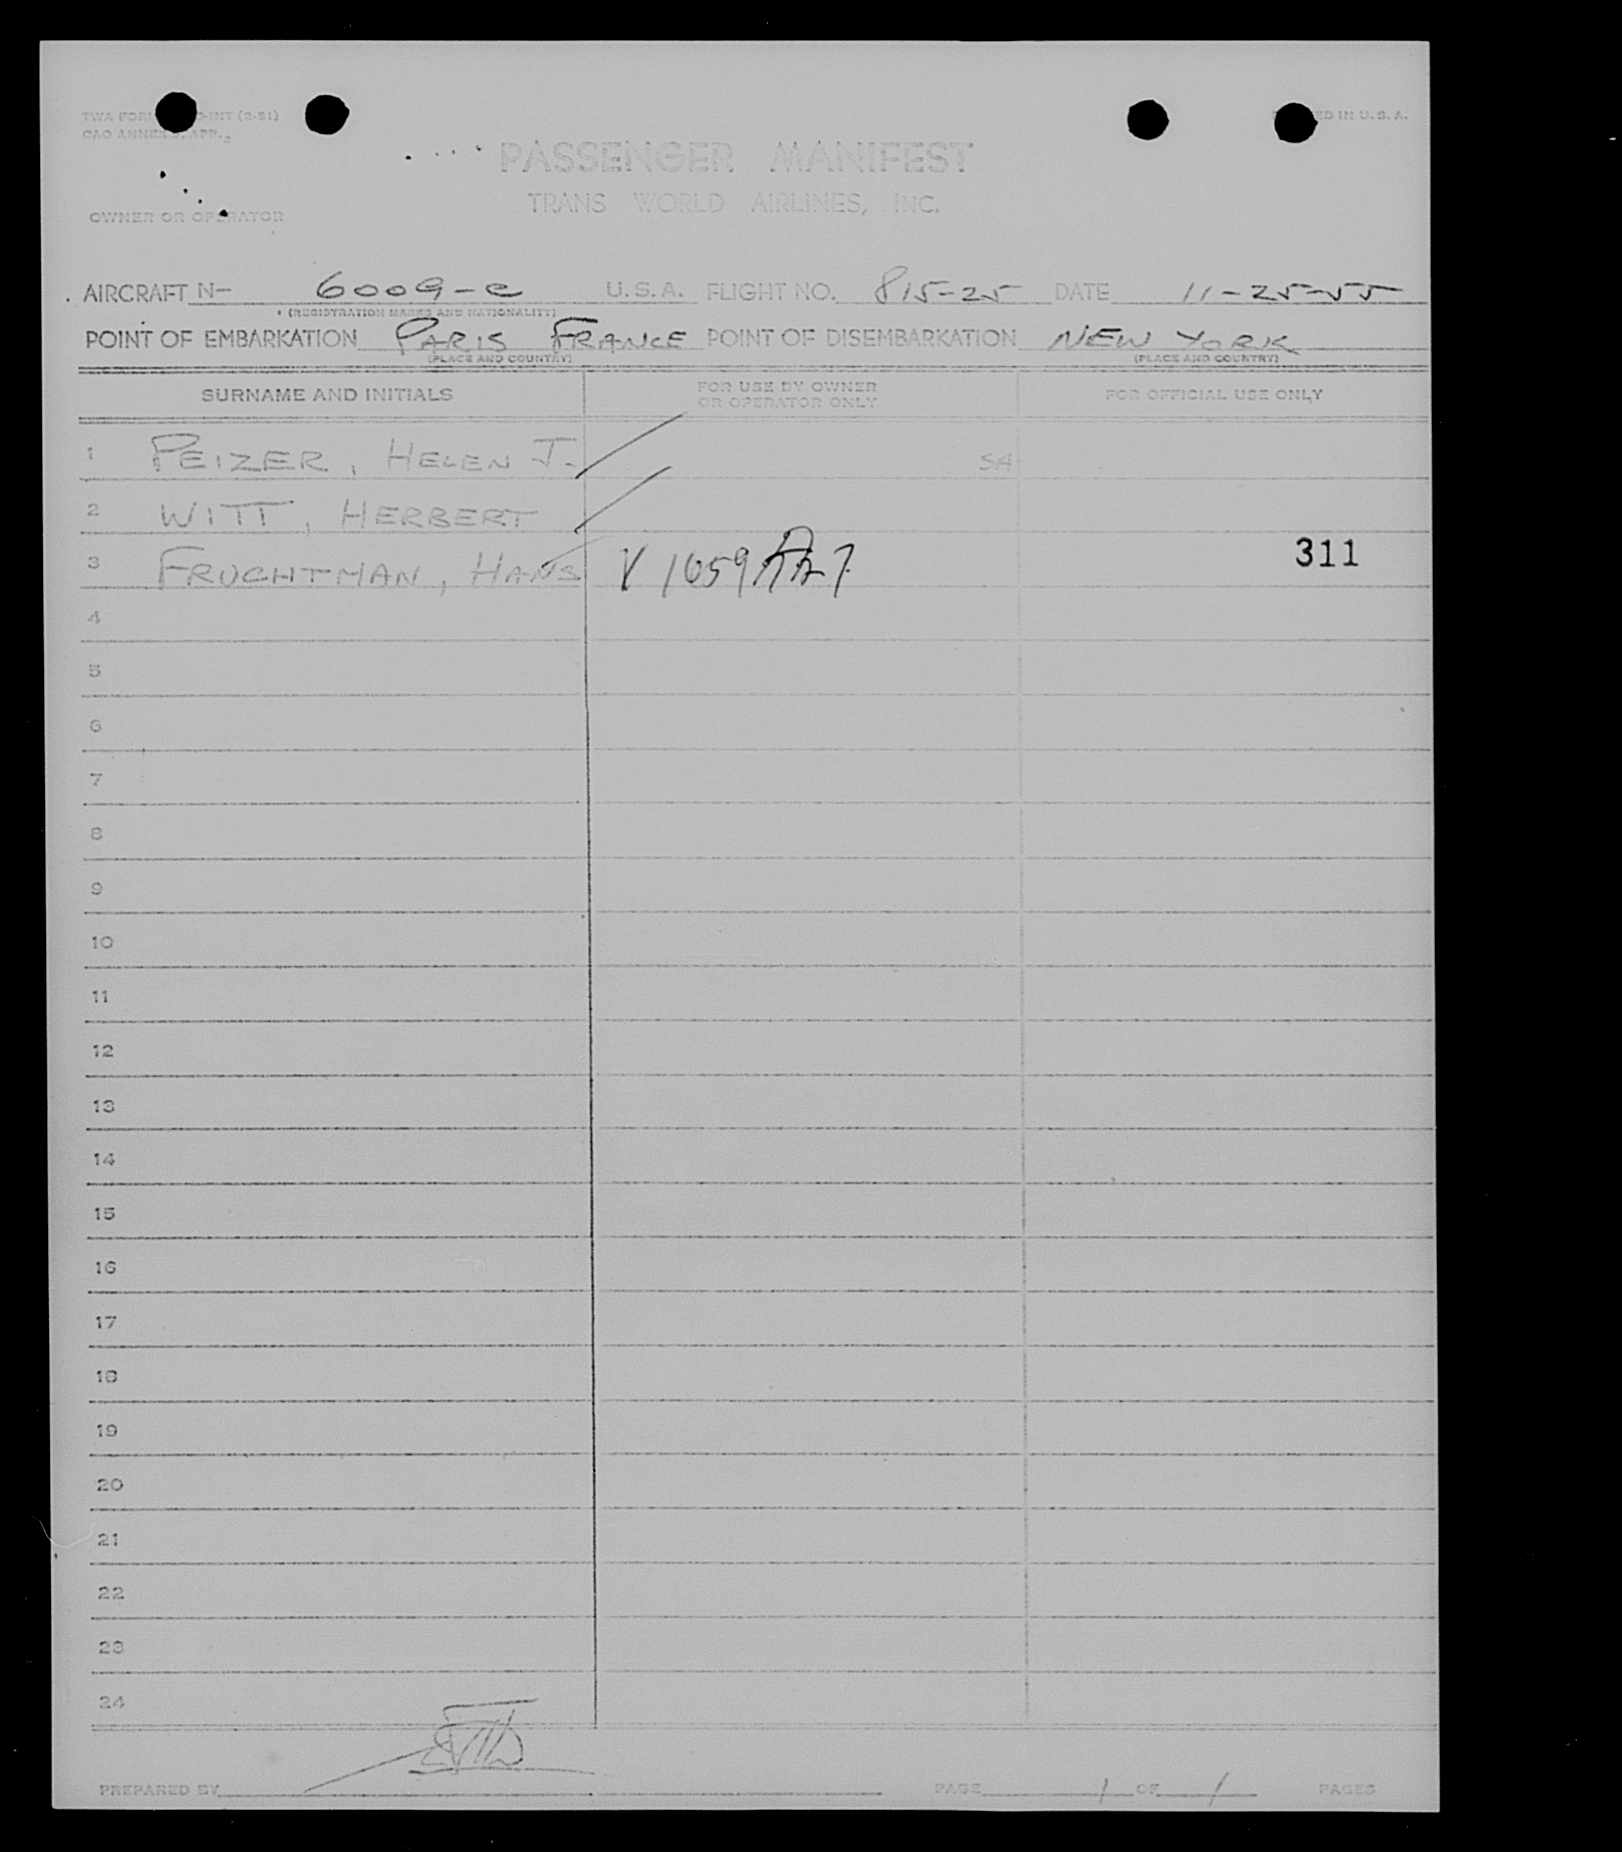 TWA FORM INT (2-51)
PRINTED IN U. S. A.
CAO ANNEX 9, APP.
PASSENGER MANIFEST
TRANS WORLD AIRLINES, INC.
OWNER OR OPERATOR
AIRCRAFT N- 6009-C U.S.A. FLIGHT NO. 815-25 DATE 11-25-55
(REGISTRATION MARKS AND NATIONALITY)
POINT OF EMBARKATION PARIS FRANCE POINT OF DISEMBARKATION NEW YORK
(PLACE AND COUNTRY) (PLACE AND COUNTRY)
SURNAME AND INITIALS FOR USE BY OWNER OR OPERATOR ONLY FOR OFFICIAL USE ONLY
1 PEIZER, HELEN J.
2 WITT, HERBERT
3 FRUCHTMAN, HANS V 1659 311
4
5
6
7
8
9
10
11
12
13
14
15
16
17
18
19
20
21
22
23
24
PREPARED BY PAGE 1 OF 1 PAGES